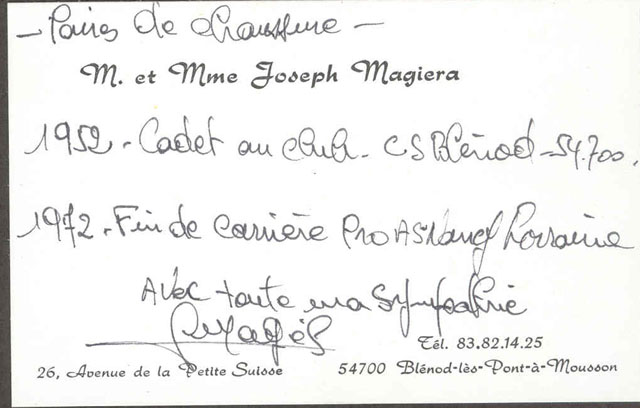 - Paires de chaussure -
M. et Mme Joseph Magiera
1952 - Cadet au club - CS Blénod - 54.700.
1972 - Fin de carrière Pro AS Nancy Lorraine
Avec toute ma Sympathie
Tél. 83.82.14.25
26, Avenue de la Petite Suisse
54700 Blénod-lès-Pont-à-Mousson